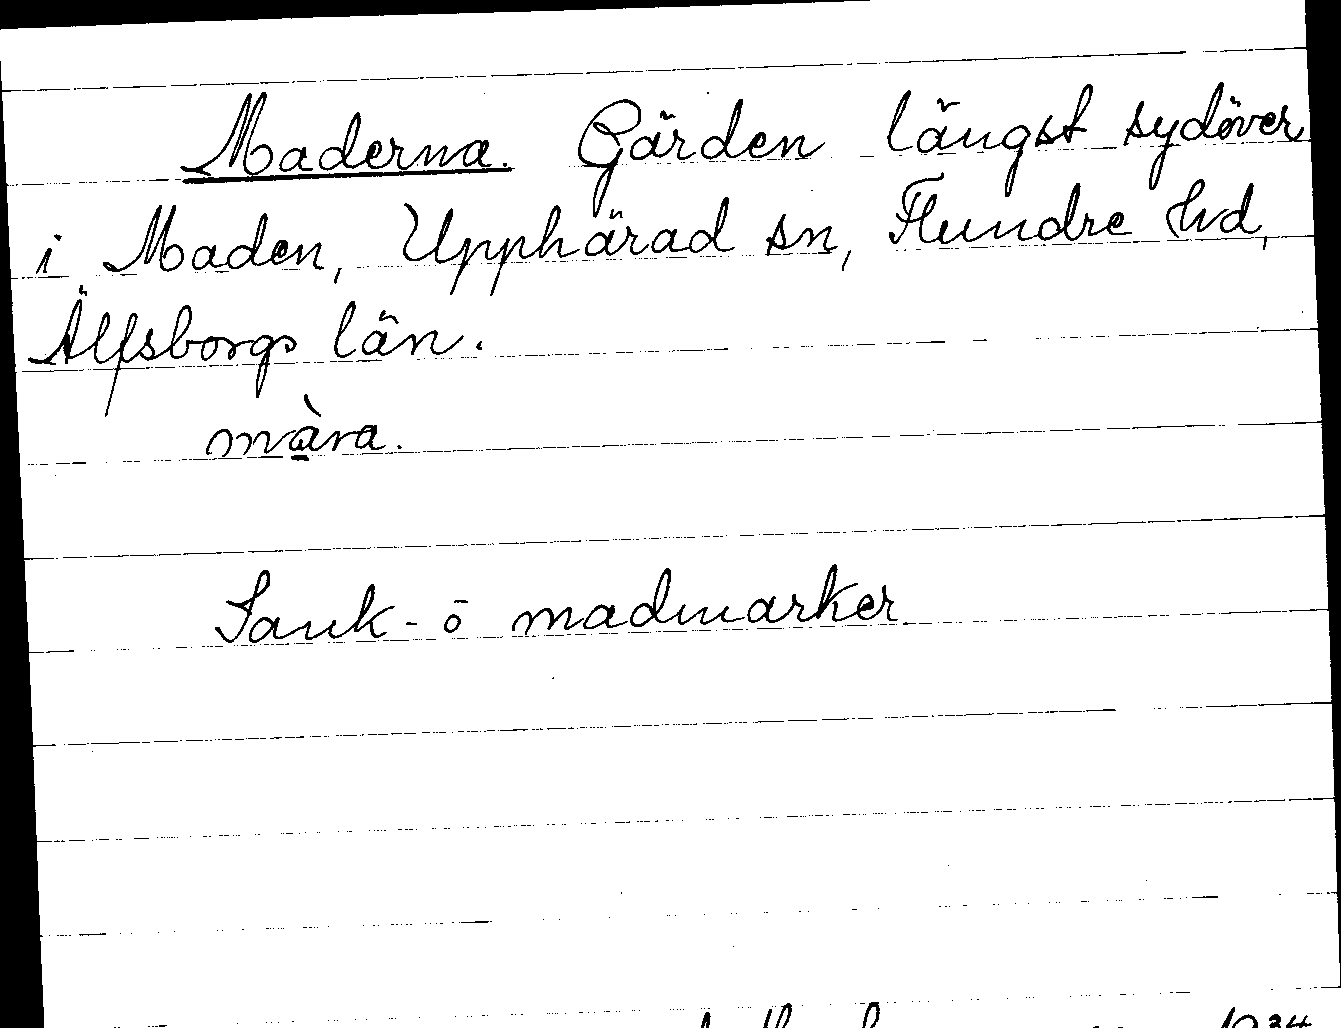 Maderna. Gärden längst sydöver
i Maden, Upphärad sn, Flundre hd,
Älfsborgs län.
màra.
Sank- ō madmarker
1934